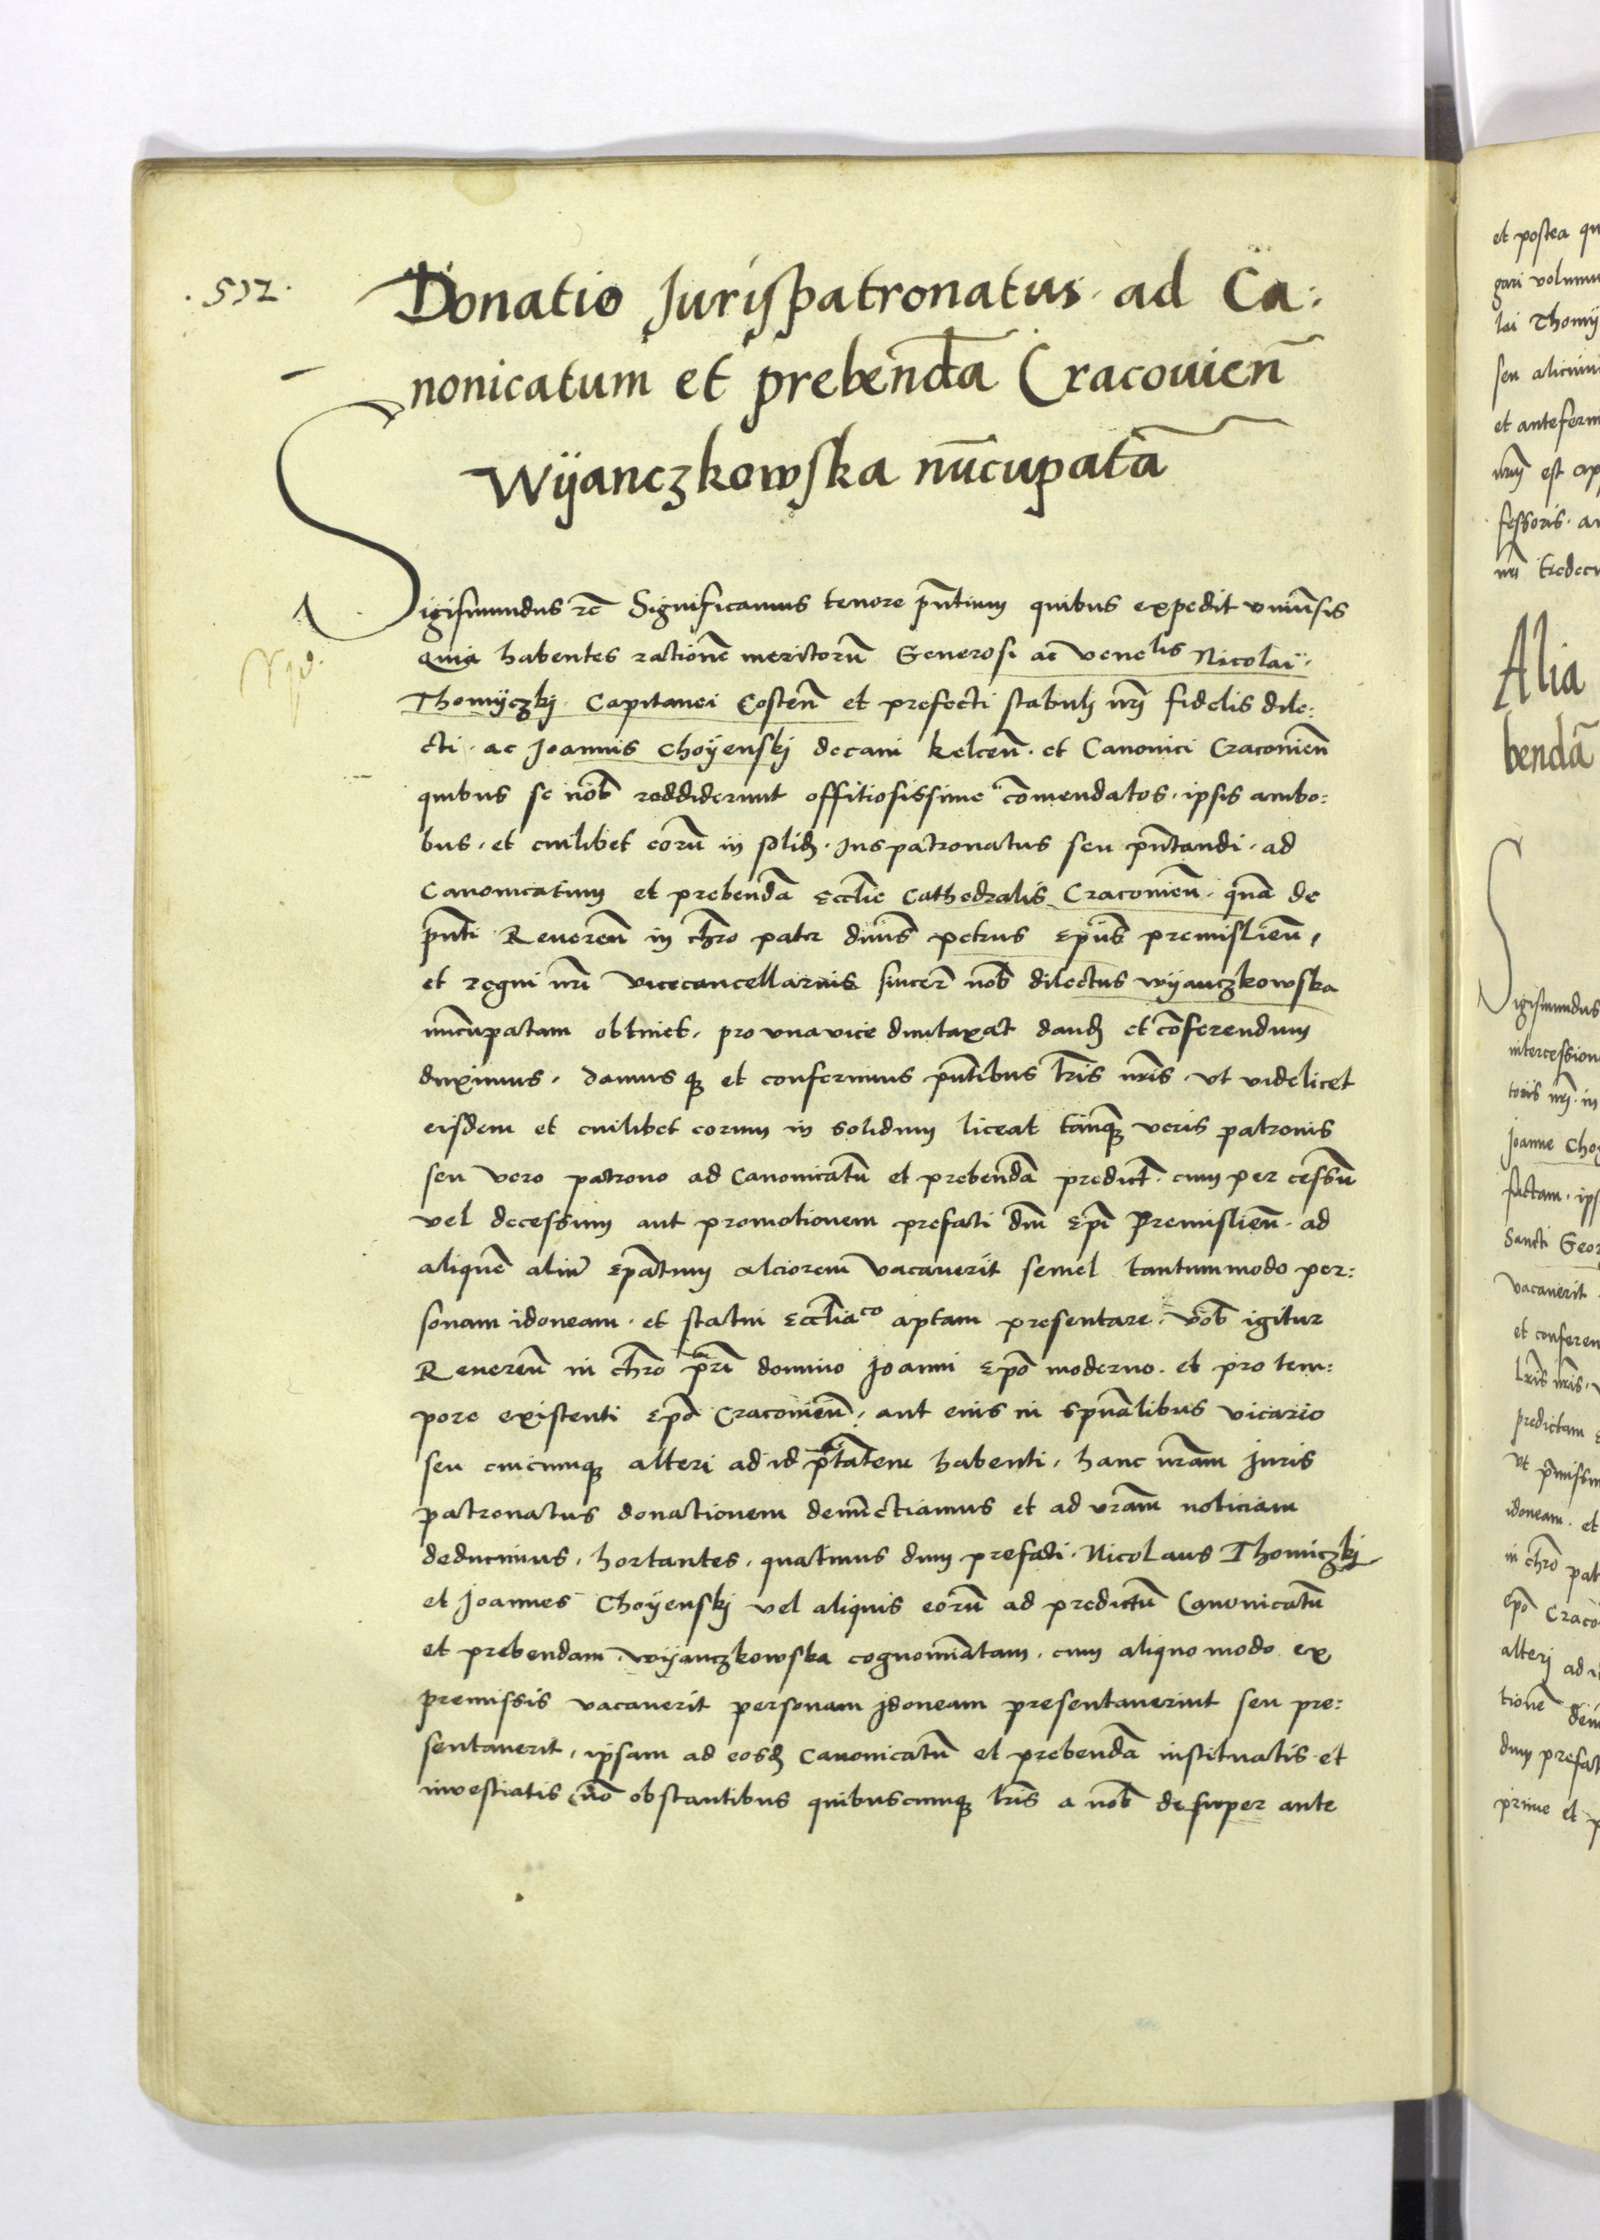 .532.
Donatio Jurispatronatus · ad Ca:
nonicatum et prebenda̅ Cracouien̅
Wÿanczkowska nu̅cupata̅
Sigismundus rc̅ Significamus tenore pn̅tium quibus expedit vniuersis
Quia habentes ratione̅ meritoru̅ Generosi ac Vene̅lis Nicolai ·
Thomÿczkj · Capitanei Costen̅ et prefecti stabulj nr̅i fidelis dile:
cti · ac Joannis Choÿenskj decani kelcen̅ · et Canonici Cracouien̅
quibus se nob̅ reddiderunt offitiosissime co̅mendatos · ipsis ambo:
bus · et cuilibet eoru̅ in solid̅ · Jus patronatus seu pn̅tandi · ad
Canonicatum et prebenda̅ Eccl̅ie Cathedralis Cracouien̅ · qua̅ de
pn̅ti Reueren̅ in chr̅o pater dn̅us petrus Ep̅us premislien̅,
et regni nr̅i Vicecancellarius syncer̅ nob̅ dilectus wÿanczkowska
nu̅cupatam obtinet, pro vna vice duntaxat dand̅ et co̅ferendum
duximus, damus q̅ et conferimus pn̅tibus lr̅is nr̅is · vt videlicet
eisdem et cuilibet eorum in solidum liceat tanq̅ veris patronis
seu vero patrono ad Canonicatu̅ et prebenda̅ predict̅ · cum per cessu̅
vel decessum aut promotionem prefati dn̅i Ep̅i Premislien̅ · ad
alique̅ aliu̅ Ep̅atum alciorem vacauerit semel tantummodo per:
sonam idoneam · et statui Eccl̅iaco aptam presentare · Vob̅ igitur
Reueren̅ in chr̅o pr̅i domino Joanni Ep̅o moderno · et pro tem:
pore existenti Ep̅o Cracouien̅, aut eius in sp̅ualibus vicario
seu cuicumq̅ alteri ad id pt̅atem habenti, hanc nr̅am Juris
patronatus donationem denu̅ctiamus et ad vr̅am noticiam
deducimus, hortantes, quatinus dum prefati · Nicolaus Thomiczkj
et Joannes Choÿenskj vel aliquis eoru̅ ad predictu̅ Canonicatu̅
et prebendam wÿanczkowska cognomi̅atam, cum aliquo modo ex
premissis vacauerit personam Jdoneam presentauerint seu pre:
sentauerit, ipsam ad eosd̅ Canonicatu̅ et prebenda̅ instituatis et
inuestiatis no̅ obstantibus quibuscumq̅ lr̅is a nob̅ desuper ante
et postea
gari
lai Thomÿ
seu
et
nr̅m est
fessoris ·
nr̅i
Alia
benda̅
Sigismundus
intercession
toris nr̅i · in
Joanne Choy
factam ·
Sancti Geor
vacauerit
et conferen
lr̅is nr̅is ·
predictam
Vt
idoneam · et
in chr̅o pat
Ep̅o Craco
alterj ad
tione̅
dum prefat
prime et